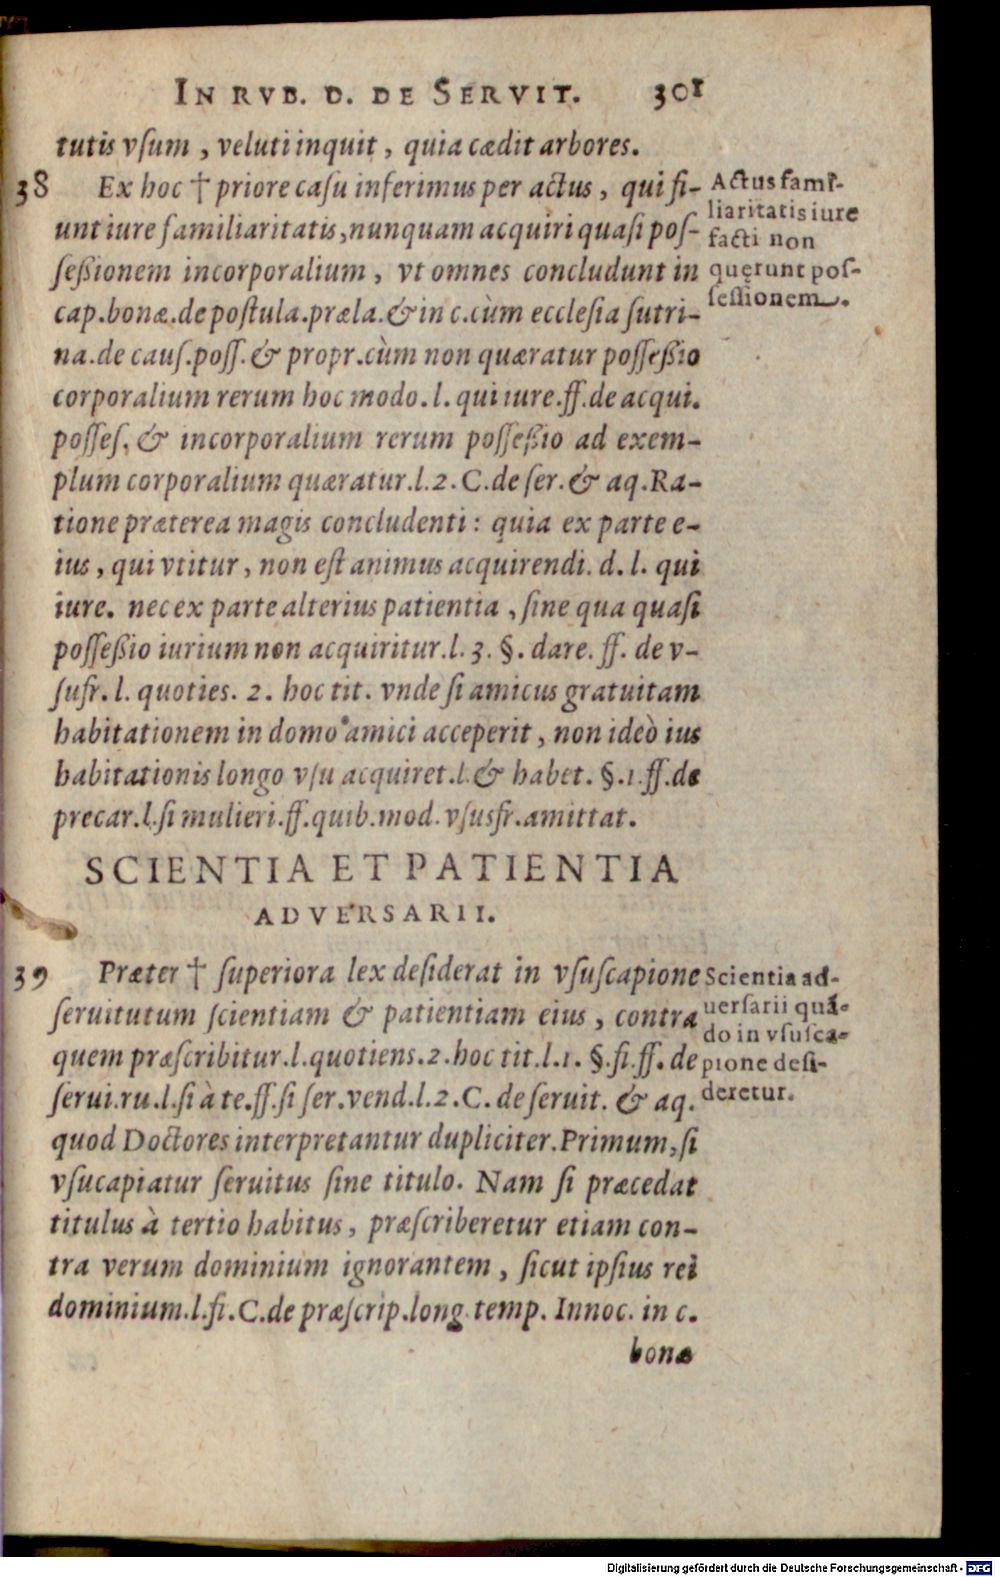 IN RVB. D. DE SERVIT. 301
tutis vſum , veluti inquit , quia cædit arbores.
38 Ex hoc † priore caſu inferimus per actus , qui fi-
unt iure familiaritatis, nunquam acquiri quaſi poſ-
ſeßionem incorporalium , vt omnes concludunt in
cap. bonæ. de poſtula. præla. & in c. cùm eccleſia ſutri-
na. de cauſ. poſſ. & propr. cùm non quæratur poſſeßio
corporalium rerum hoc modo. l. qui iure. ff. de acqui.
poſſeſ. & incorporalium rerum poſſeßio ad exem-
plum corporalium quæratur. l. 2. C. de ſer. & aq. Ra-
tione præterea magis concludenti : quia ex parte e-
ius , qui vtitur , non eſt animus acquirendi. d. l. qui
iure. nec ex parte alterius patientia , ſine qua quaſi
poſſeßio iurium non acquiritur. l. 3. §. dare. ff. de v-
ſufr. l. quoties. 2. hoc tit. vnde ſi amicus gratuitam
habitationem in domo amici acceperit , non ideò ius
habitationis longo vſu acquiret. l. & habet. §. 1. ff. de
precar. l. ſi mulieri. ff. quib. mod. vſusfr. amittat.
Actus fami-
liaritatis iure
facti non
quęrunt poſ-
ſeſſionem.
SCIENTIA ET PATIENTIA
ADVERSARII.
39 Præter † ſuperiora lex deſiderat in vſuſcapione
ſeruitutum ſcientiam & patientiam eius , contra
quem præſcribitur. l. quotiens. 2. hoc tit. l. 1. §. ſi. ff. de
ſerui. ru. l. ſi à te. ff. ſi ſer. vend. l. 2. C. de ſeruit. & aq.
quod Doctores interpretantur dupliciter. Primum, ſi
vſucapiatur ſeruitus ſine titulo. Nam ſi præcedat
titulus à tertio habitus , præſcriberetur etiam con-
tra verum dominium ignorantem , ſicut ipſius rei
dominium. l. fi. C. de præſcrip. long. temp. Innoc. in c.
bonæ
Scientia ad-
uerſarii quã-
do in vſuſca-
pione deſi-
deretur.
Digitalisierung gefördert durch die Deutsche Forschungsgemeinschaft - DFG